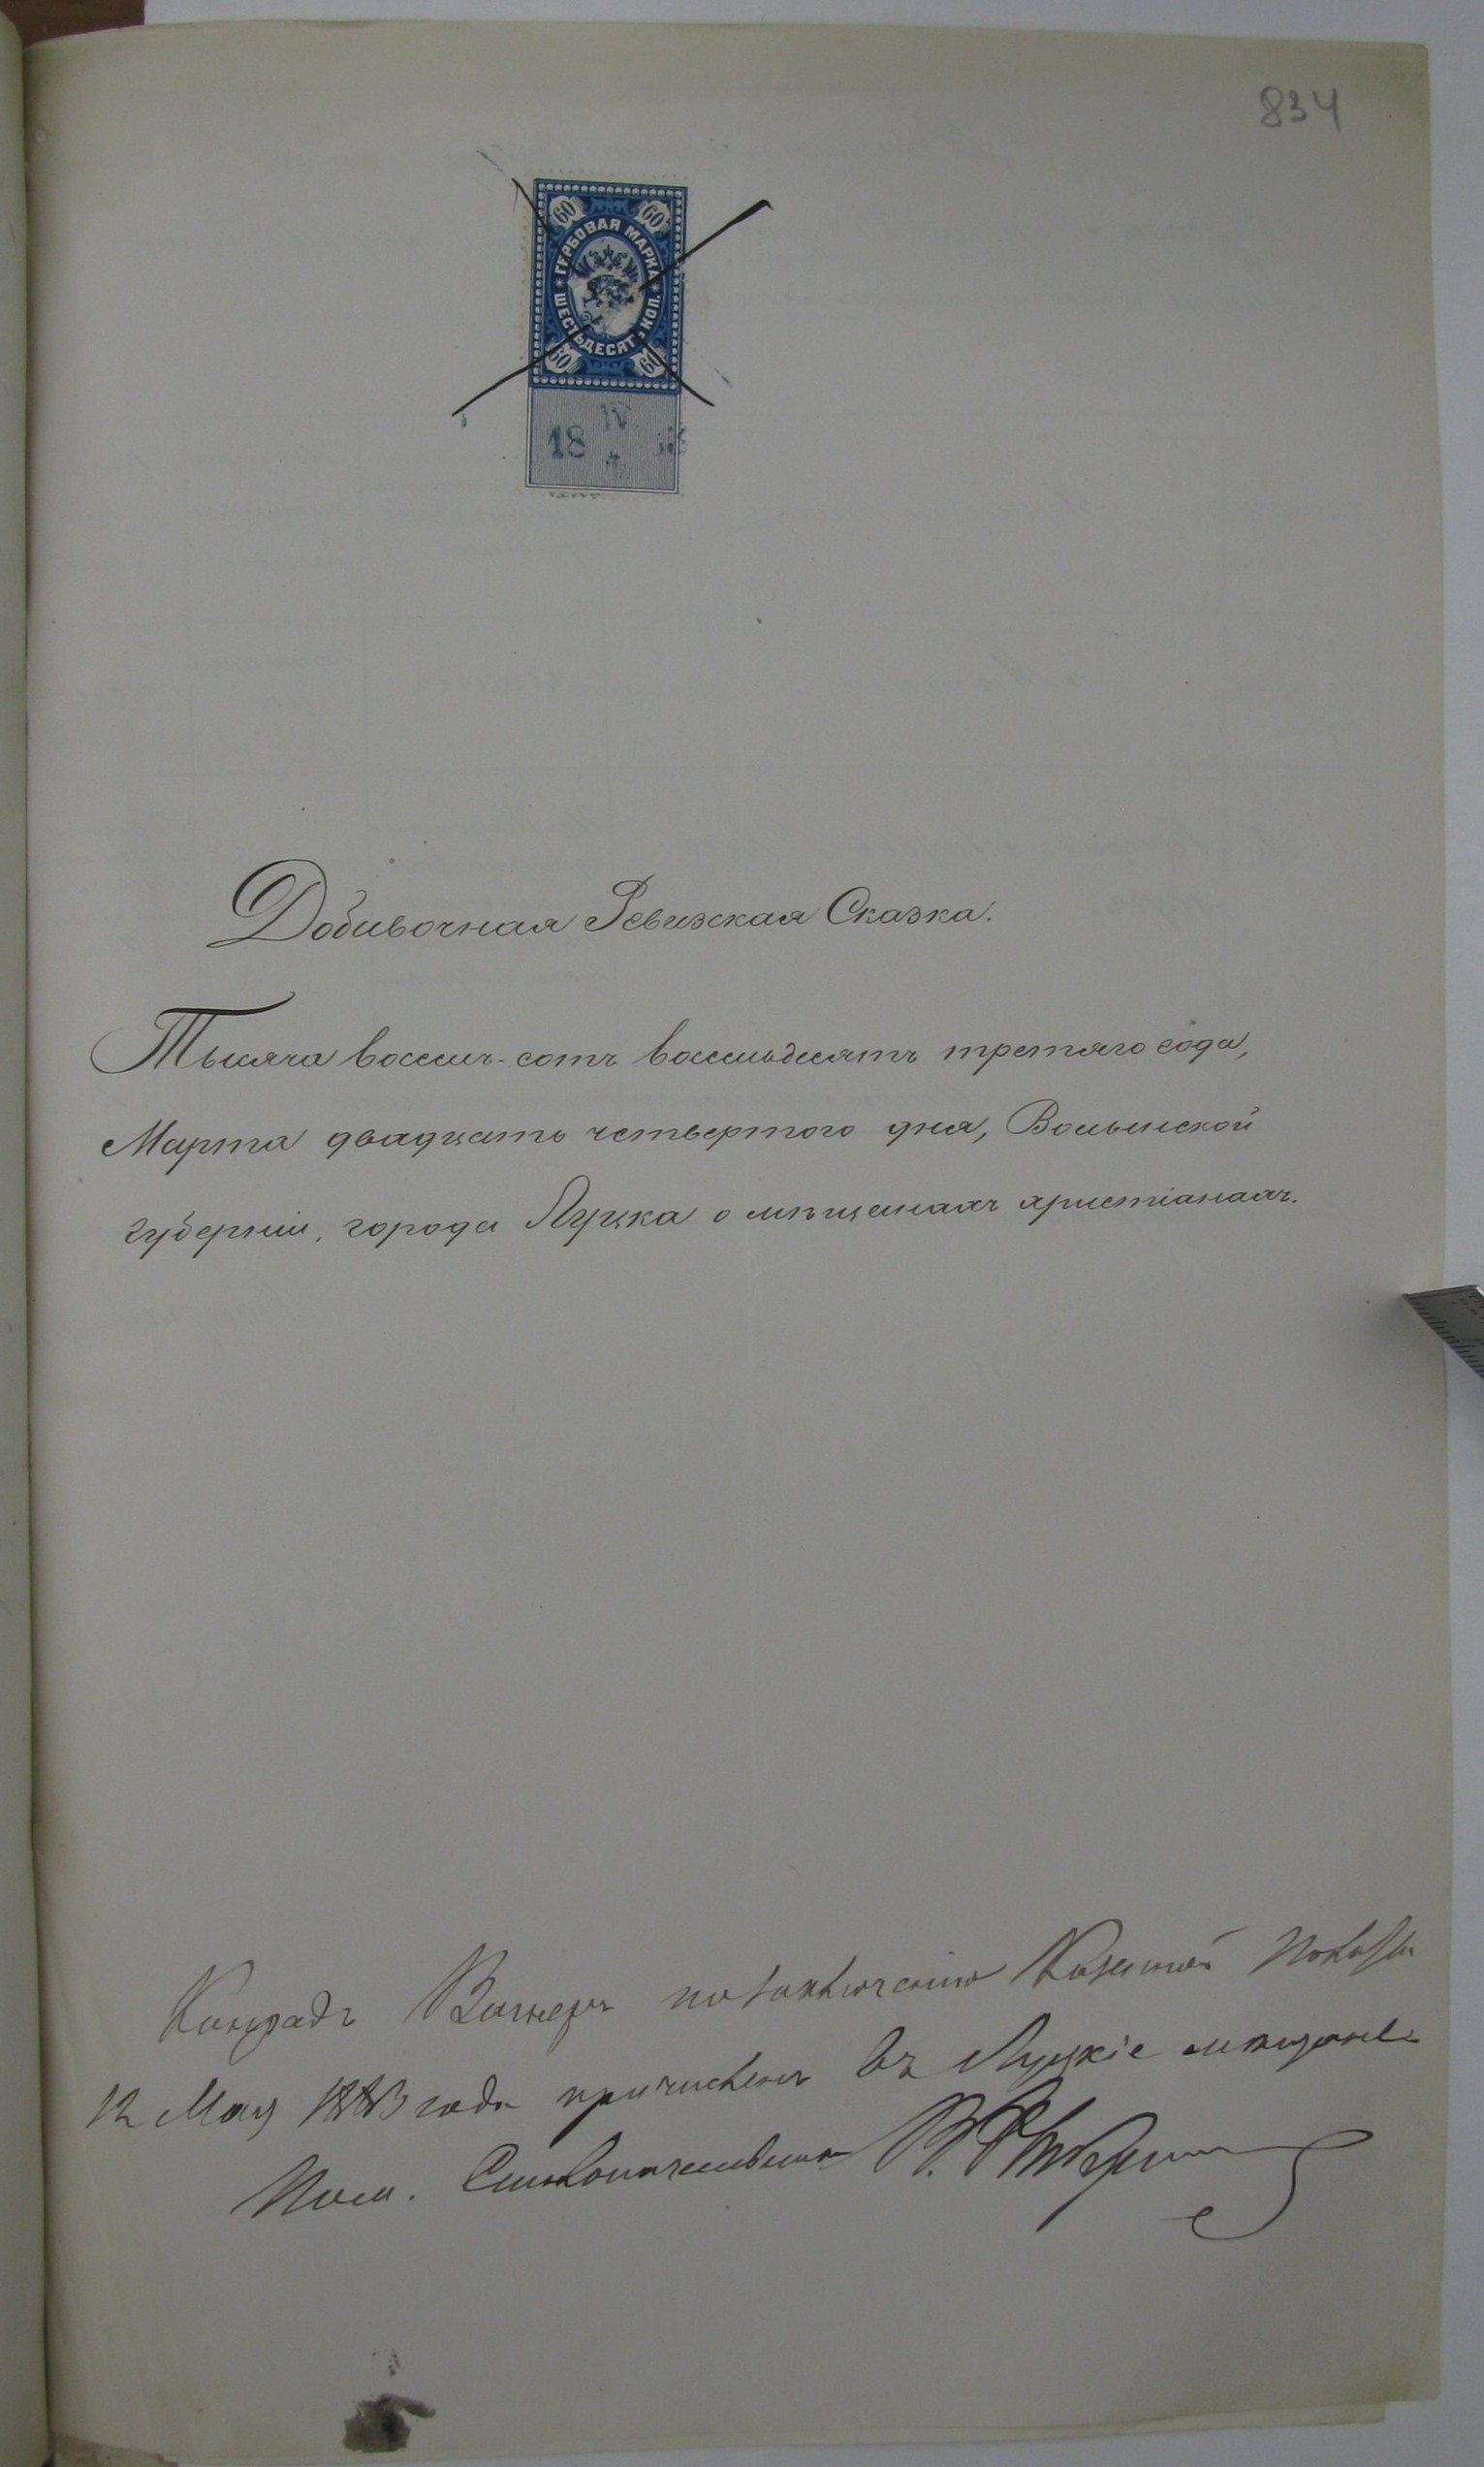 834
60 60
ГЕРБОВАЯ МАРКА
ШЕСТЬДЕСЯТЪ КОП.
60 60
IV
18
Добавочная Ревизская Сказка.
Тысяча восемь-сотъ восемьдесятъ третяго года,
Марта двадцать четвертого дня, Волынской
губерніи, города Луцка о мѣщанахъ христіанахъ.
Конрадъ Вагнеръ по заключенію Казенной Палаты
12 Мая 1883 года причисленъ въ Луцкіе мѣщане
Пом. Столоначальника